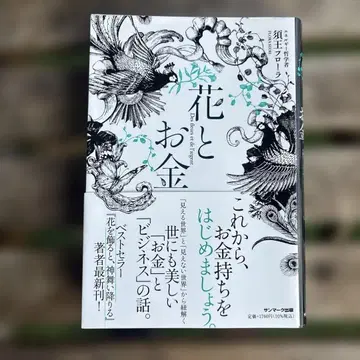 エネルギー哲学者
須王フローラ
花と
お金
Des fleurs et de l'argent
これから、
お金持ちを
はじめましょう。
「見える世界」と「見えない世界」から紐解く
世にも美しい
「お金」と
「ビジネス」の話。
ベストセラー
『花を飾ると、神舞い降りる』
著者最新刊！
サンマーク出版
定価=1760円(10%税込)
お金